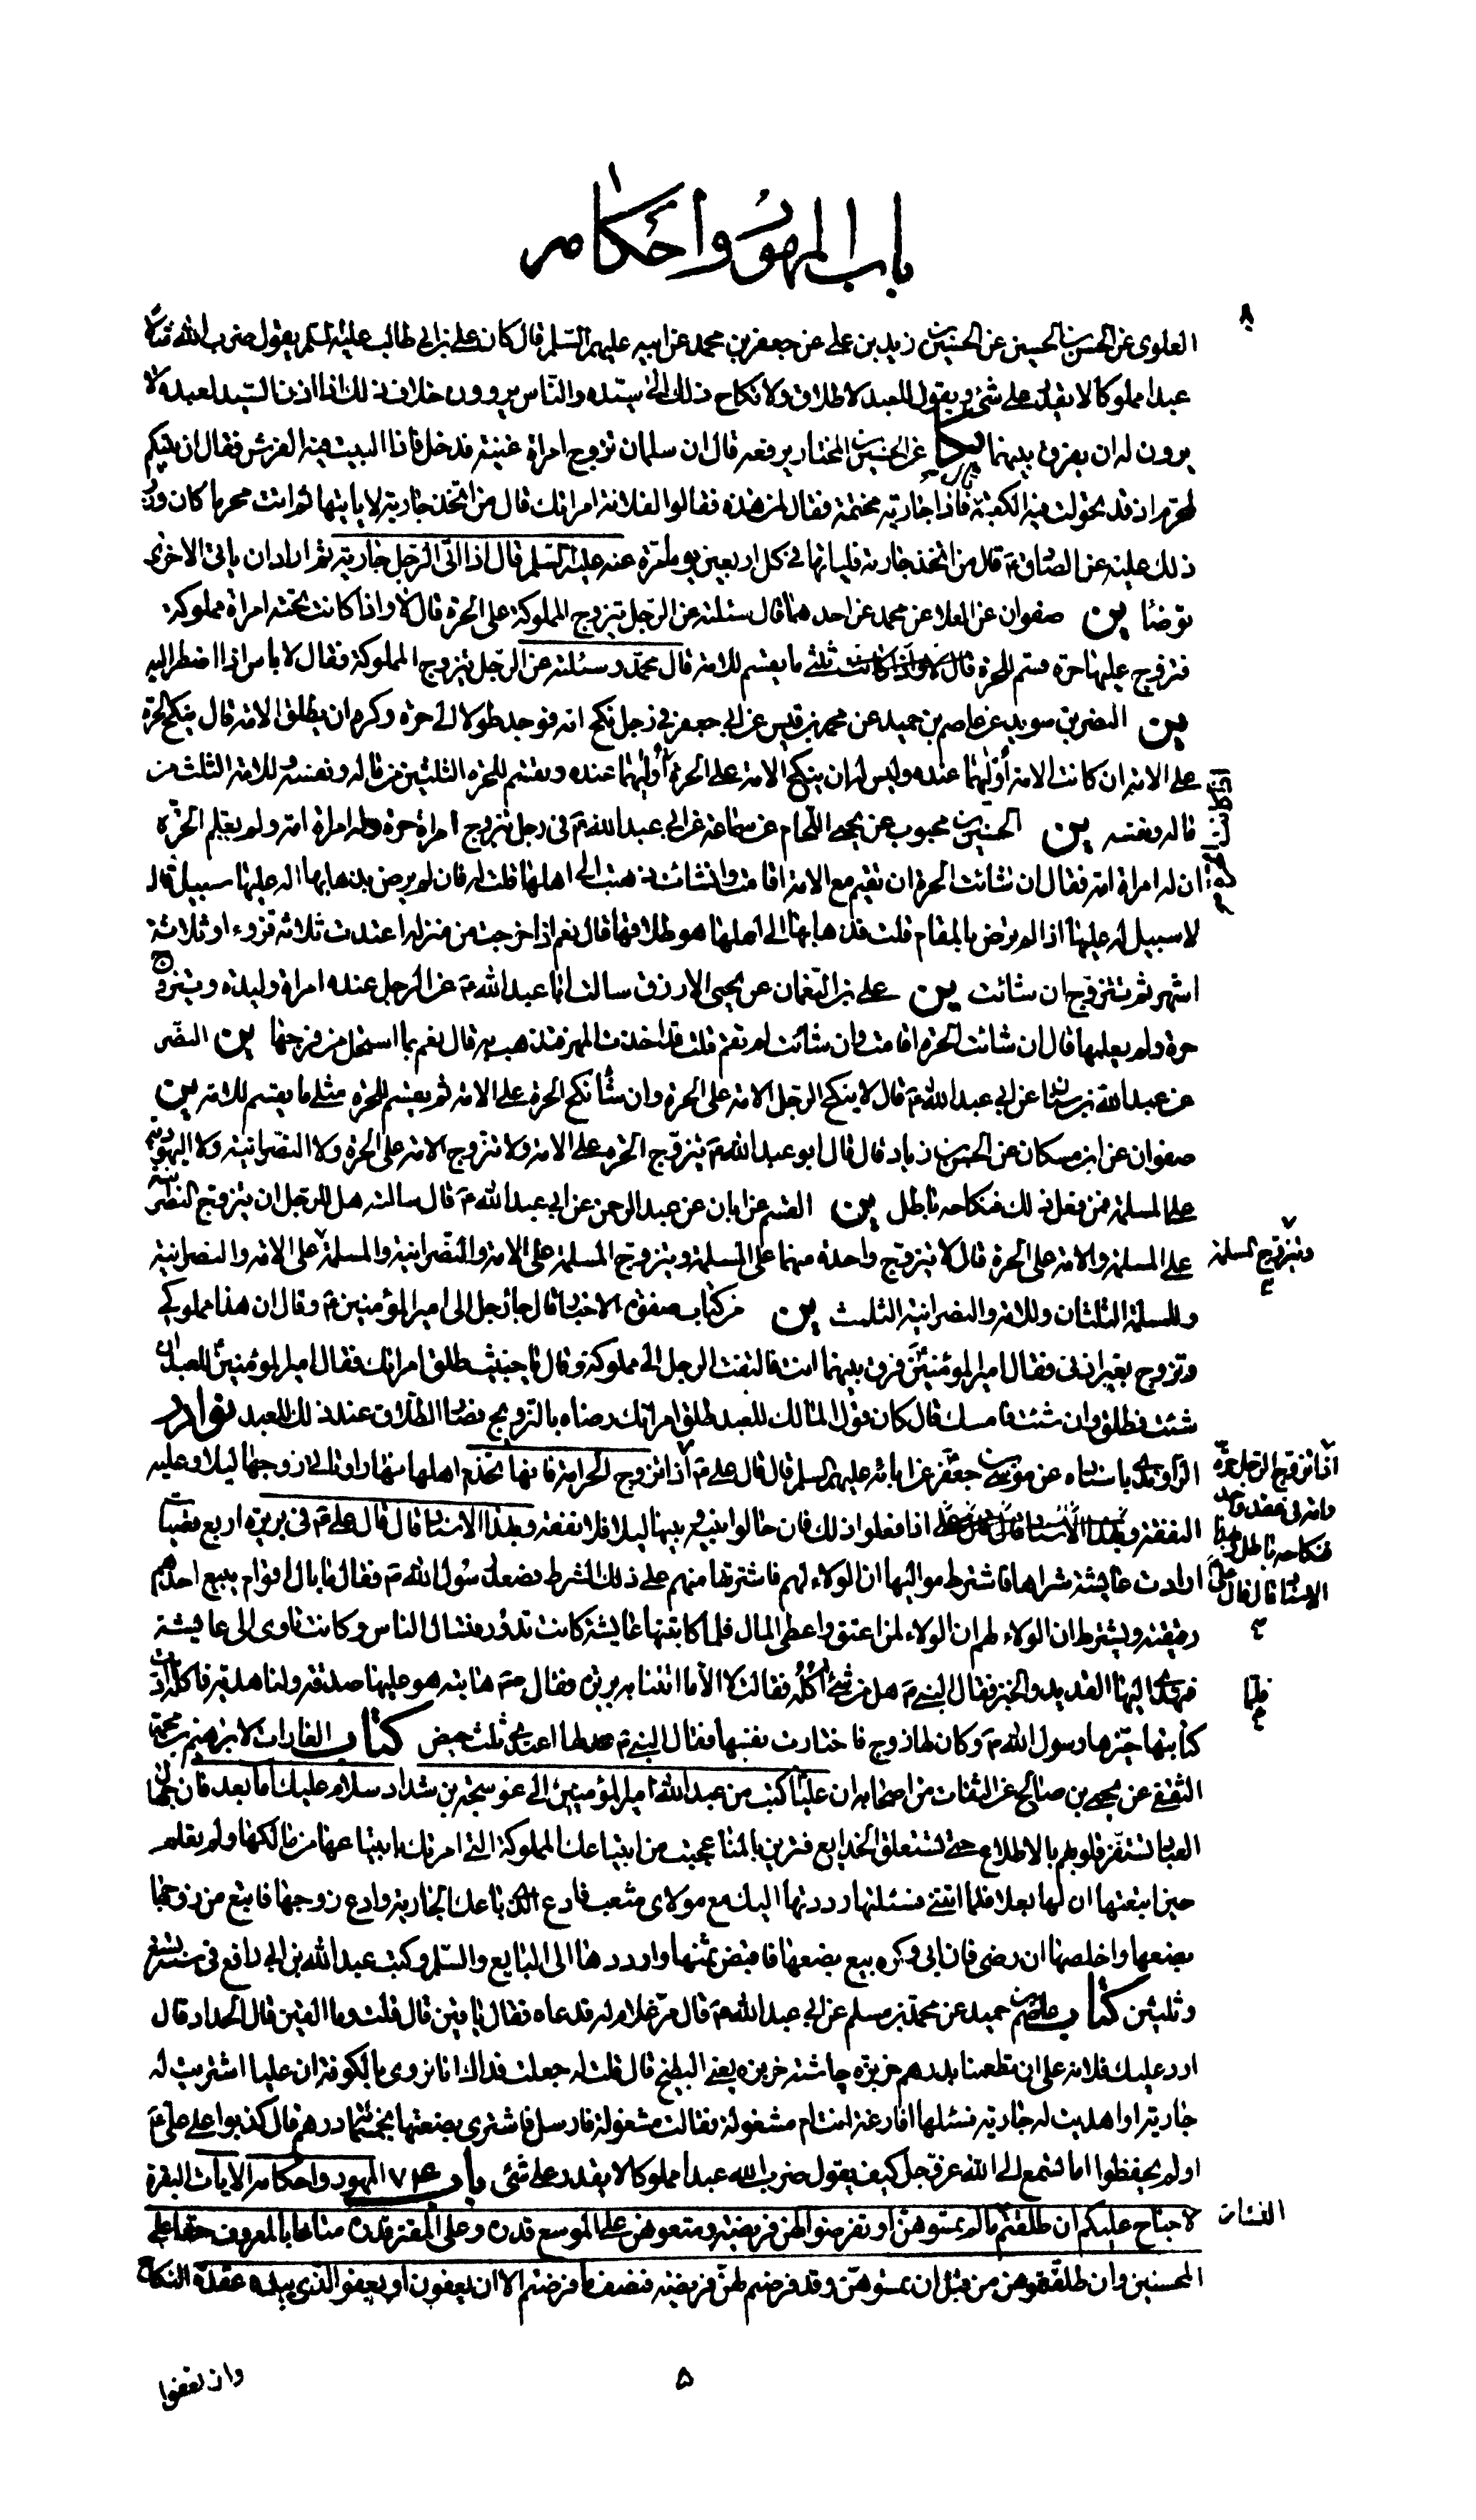 باب المهور واحكامه
٨
العلوى عن الحسن بن الحسين عن الحسين بن زيد بن على عن جعفر بن محمد عن ابيه عليهم السلم قال كان على بن ابى طالب عليه السلم يقول ضرب الله مثلا
عبدا مملوكا لا يقدر على شئ ويقول للعبد لا طلاق ولا نكاح ذلك الى سيده والناس يروون خلاف ذلك اذا اذن السيد لعبده لا
يرون له ان يفرق بينهما عن الحسين بن المختار يرفعه قال ان سلمان تزوج امراة غنية فدخل فاذا البيت فيه الفرش فقال ان بيتكم
لمحرم اذ قد تحولت فيه الكعبة فاذا جارية مختمة فقال لمن هذه فقالوا لفلانة امراتك قال من اتخذ جارية لا ياتيها ثم اتت محرما كان وزر
ذلك عليه عن الصادق ع قال من اتخذ جارية فلياتها فى كل اربعين يوما مرة عنه عليه السلم قال اذا اتى الرجل جاريته ثم اراد ان ياتى الاخرى
توضا ين صفوان عن العلا عن محمد عن احدهما قال سئلته عن الرجل يتزوج المملوكة على الحرة قال لا واذا كانت تحته امراة مملوكة
فتزوج عليها حرة قسم للحرة ثلثى ما يقسم للامة قال محمد وسئلته عن الرجل يتزوج المملوكة فقال لا باس اذا اضطر اليه
ين النضر بن سويد عن عاصم بن حميد عن محمد بن قيس عن ابى جعفر فى رجل نكح امة فوجد طولا الى حرة وكره ان يطلق الامة قال ينكح الحرة
على الامة ان كانت الامة اوليهما عنده وليس له ان ينكح الامة على الحرة اوليهما عنده ويقسم للحرة الثلثين من ماله ونفسه وللامة الثلث من
ماله ونفسه ين الحسن بن محبوب عن يحيى اللحام عن سماعة عن ابى عبد الله ع فى رجل تزوج امراة حرة وله امراة امة ولم يعلم الحرة
ان له امراة امة فقال ان شائت الحرة ان تقيم مع الامة اقامت وان شائت ذهبت الى اهلها قلت له فان لم يرض بذهابها اله عليها سبيل قال
لا سبيل له عليها اذا لم ترض بالمقام قلت فذهابها الى اهلها هو طلاقها قال نعم اذا خرجت من منزله اعتدت ثلاثة قروء او ثلاثة
اشهر ثم تتزوج ان شائت ين على بن النعمان عن يحيى الازرق سالت ابا عبد الله ع عن الرجل عنده امراة وليدة وتزوج
حرة ولم يعلمها قال ان شائت الحرة اقامت وان شائت لم تقم قلت قد اخذت المهر فتذهب به قال نعم بما استحل من فرجها ين النضر
عن عبد الله بن سنان عن ابى عبد الله ع قال لا ينكح الرجل الامة على الحرة وان شاء نكح الحرة على الامة ثم يقسم للحرة مثلى ما يقسم للامة ين
صفوان عن ابن مسكان عن الحسن بن زياد قال قال ابو عبد الله ع تزوج الحرة على الامة ولا تزوج الامة على الحرة ولا النصرانية ولا اليهودية
على المسلمة فمن فعل ذلك فنكاحه باطل ين القسم عن ابان عن عبد الرحمن عن ابى عبد الله ع قال سالته هل للرجل ان يتزوج النصرانية
على المسلمة والامة على الحرة قال لا يتزوج واحدة منهما على المسلمة ويتزوج المسلمة على الامة والنصرانية والمسلمة على الامة والنصرانية
وتتزوج المسلمة
وللمسلمة الثلثان وللامة والنصرانية الثلث ين من كتاب صفوة الاخبار قال جاء رجل الى امير المؤمنين ع وقال ان هذا مملوكى
وتزوج بغير اذنى فقال امير المؤمنين فرق بينهما انت فالتفت الرجل الى مملوكه وقال يا خبيث طلق امراتك فقال امير المؤمنين للعبد ان
شئت فطلق وان شئت فامسك قال كان قول المالك للعبد طلق امراتك رضاه بالتزويج فصار الطلاق عند ذلك للعبد نوادر
الراوندى باسناده عن موسى بن جعفر عن ابائه عليهم السلم قال قال على ع اذا تزوج الحر امة فانها تخدم اهلها نهارا وتاتى زوجها ليلا وعليه
اذا تزوج الرجل حرة
وامة فى عقد واحد
فنكاحه باطل وبهذا
الاسناد قال قال على ع
النفقة اذا فعلوا ذلك فان حالوا بينه وبينها ليلا فلا نفقة وبهذا الاسناد قال قال على ع فى بريرة اربع قضيات
ارادت عايشة شراها فاشترط مواليها ان الولاء لهم فاشترتها منهم على ذلك الشرط فصعد رسول الله ص فقال ما بال اقوام يبيع احدهم
رقيقه ويشترط ان الولاء لهم ان الولاء لمن اعتق واعطى المال فلما كاتبتها عايشة كانت تدور فتسال الناس وكانت تاوى الى عايشة
فتهدى اليها القديد والخبز فقال النبى ص هل من شئ اكله فقالت لا الا ما اتتنا به بريرة فقال ص هاتيه هو عليها صدقة ولنا هدية فاكله فلما ادت
كتابتها خيرها رسول الله ص وكان لها زوج فاختارت نفسها فقال النبى ص لها اعتدى ثلث حيض كتاب الغارات لابراهيم بن محمد
الثقفى عن يحيى بن صالح عن الثقات من اصحابه ان عليا كتب من عبد الله امير المؤمنين الى عوسجة بن شداد سلام عليك اما بعد فان جهال
العباد تستفز قلوبهم بالاطماع حتى تستعلق الخدايع فترين بالمنا عجبت من ابتياعك المملوكة التى امرتك بابتياعها من مالكها ولم تعلم
حين ابتعتها ان لها بعلا فلما اتتنى فسئلتها رددتها اليك مع مولاى مثعب فادع الذى باعك الجارية وادع زوجها فابتع من زوجها
بضعها واخلصها ان رضى فان ابى وكره بيع بضعها فاقبض ثمنها وارددها الى البايع والسلم وكتب عبد الله بن ابى رافع فى سنة تسع
وثلثين كتاب عاصم بن حميد عن محمد بن مسلم عن ابى عبد الله ع قال مر غلام له فدعاه فقال يا قين قال قلت وما القين قال الحداد قال
ارد عليك فلانة على ان تطعمنا بدرهم خربزة چاشته خربزه يعنى البطيخ قال قلت له جعلت فداك انا نروى بالكوفة ان عليا اشتريت له
جارية او اهديت له جارية فسئلها افارغة انت ام مشغولة فقالت مشغولة فارسل فاشترى بضعها بخمسمائة درهم قال كذبوا على على ع
او لم يحفظوا اما تسمع الى الله عز وجل كيف يقول ضرب الله عبدا مملوكا لا يقدر على شئ باب ٧٣٤ المهور واحكامه الايات البقرة
لا جناح عليكم ان طلقتم النساء ما لم تمسوهن او تفرضوا لهن فريضة ومتعوهن على الموسع قدره وعلى المقتر قدره متاعا بالمعروف حقا على
المحسنين وان طلقتموهن من قبل ان تمسوهن وقد فرضتم لهن فريضة فنصف ما فرضتم الا ان يعفون او يعفو الذى بيده عقدة النكاح
وان تعفوا
۵